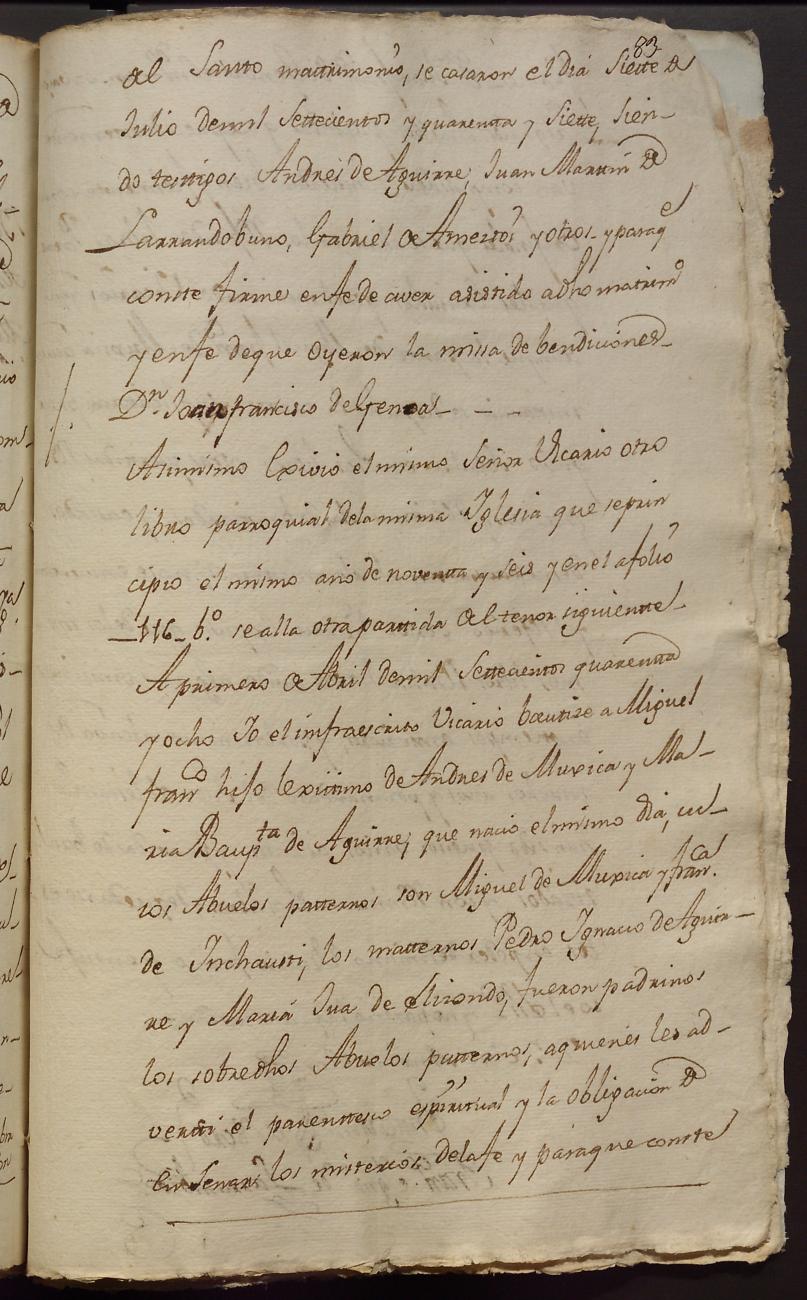 83
al Santo mattrimonio, se casaron el dia Siette de
Julio de mil Settecientos y quarenta y Siette, sien-
do testigos Andres de Aguirre, Juan Martin de
Larrandobuno, Gabriel de Amezto y otros y paraq e
conste firme en fe de aver asistido a dho matrim o
y en fe de que oyeron la missa de bendiciones
Dn. Joan francisco de
Asimismo Exivio el mismo Señor Vicario otro
libro parroquial de la misma Iglesia que se prin
cipio el mismo año de noventta y seis y en el a folio
116 b.o se alla otra parttida del tenor siguientte
A primero de Abril de mil Settecientos quarentta
y ocho Yo el infraescrito Vicario bautize a Miguel
fran co hijo lexittimo de Andres de Muxica y Ma-
ria Baup ta de Aguirre, que nacio el mismo dia, cu-
ios Abuelos patternos son Miguel de Muxica y fran ca
de Inchausti, los matternos Pedro Ignacio de Aguir-
re y Maria Jua de Elizondo, fueron padrinos
los sobredhos Abuelos patternos, a quienes les ad-
vertti el parenttesco espiritual y la obligacion de
Ensenar los misterios de la fe y para que conste